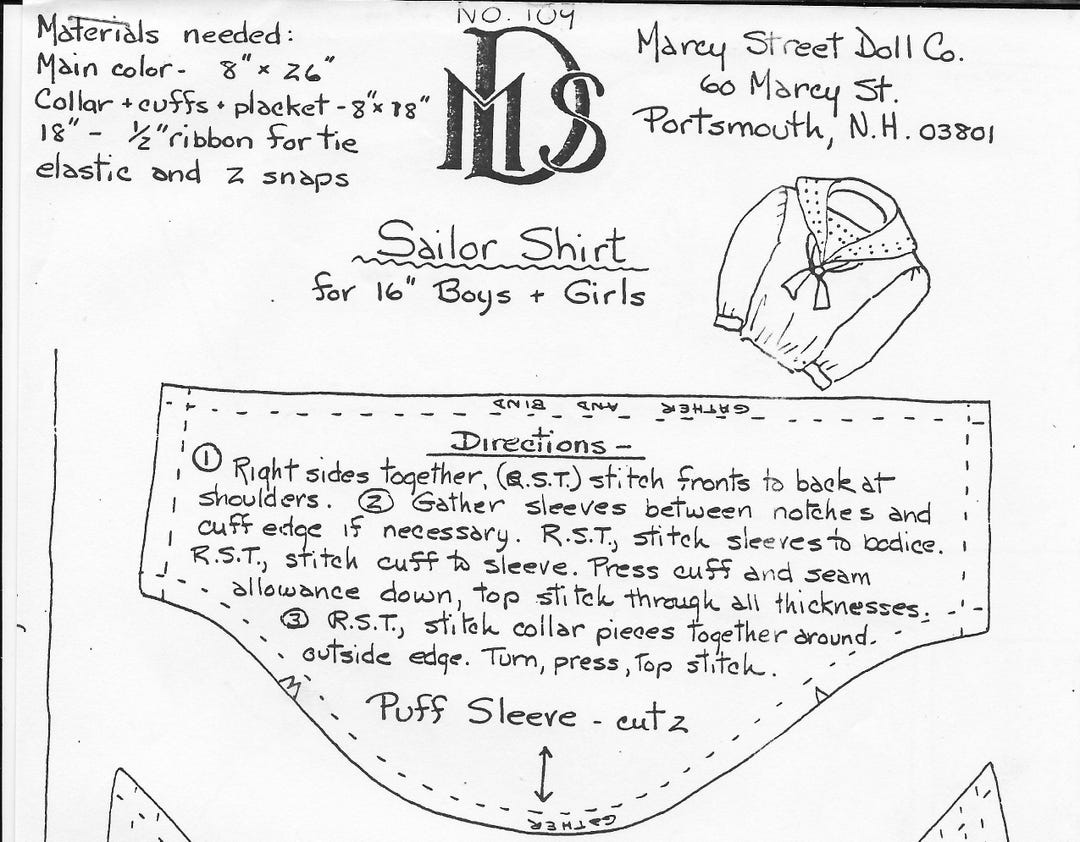 NO. 104
Materials needed:
Main color - 8" x 26"
Collar + cuffs + placket - 8" x 18"
18" - ½" ribbon for tie
elastic and 2 snaps
MDS
Marcy Street Doll Co.
60 Marcy St.
Portsmouth, N.H. 03801
Sailor Shirt
for 16" Boys + Girls
GATHER AND BIND
Directions -
① Right sides together, (R.S.T.) stitch fronts to back at
shoulders. ② Gather sleeves between notches and
cuff edge if necessary. R.S.T., stitch sleeves to bodice.
R.S.T., stitch cuff to sleeve. Press cuff and seam
allowance down, top stitch through all thicknesses.
③ R.S.T., stitch collar pieces together around
outside edge. Turn, press, top stitch.
Puff Sleeve - cut 2
GATHER